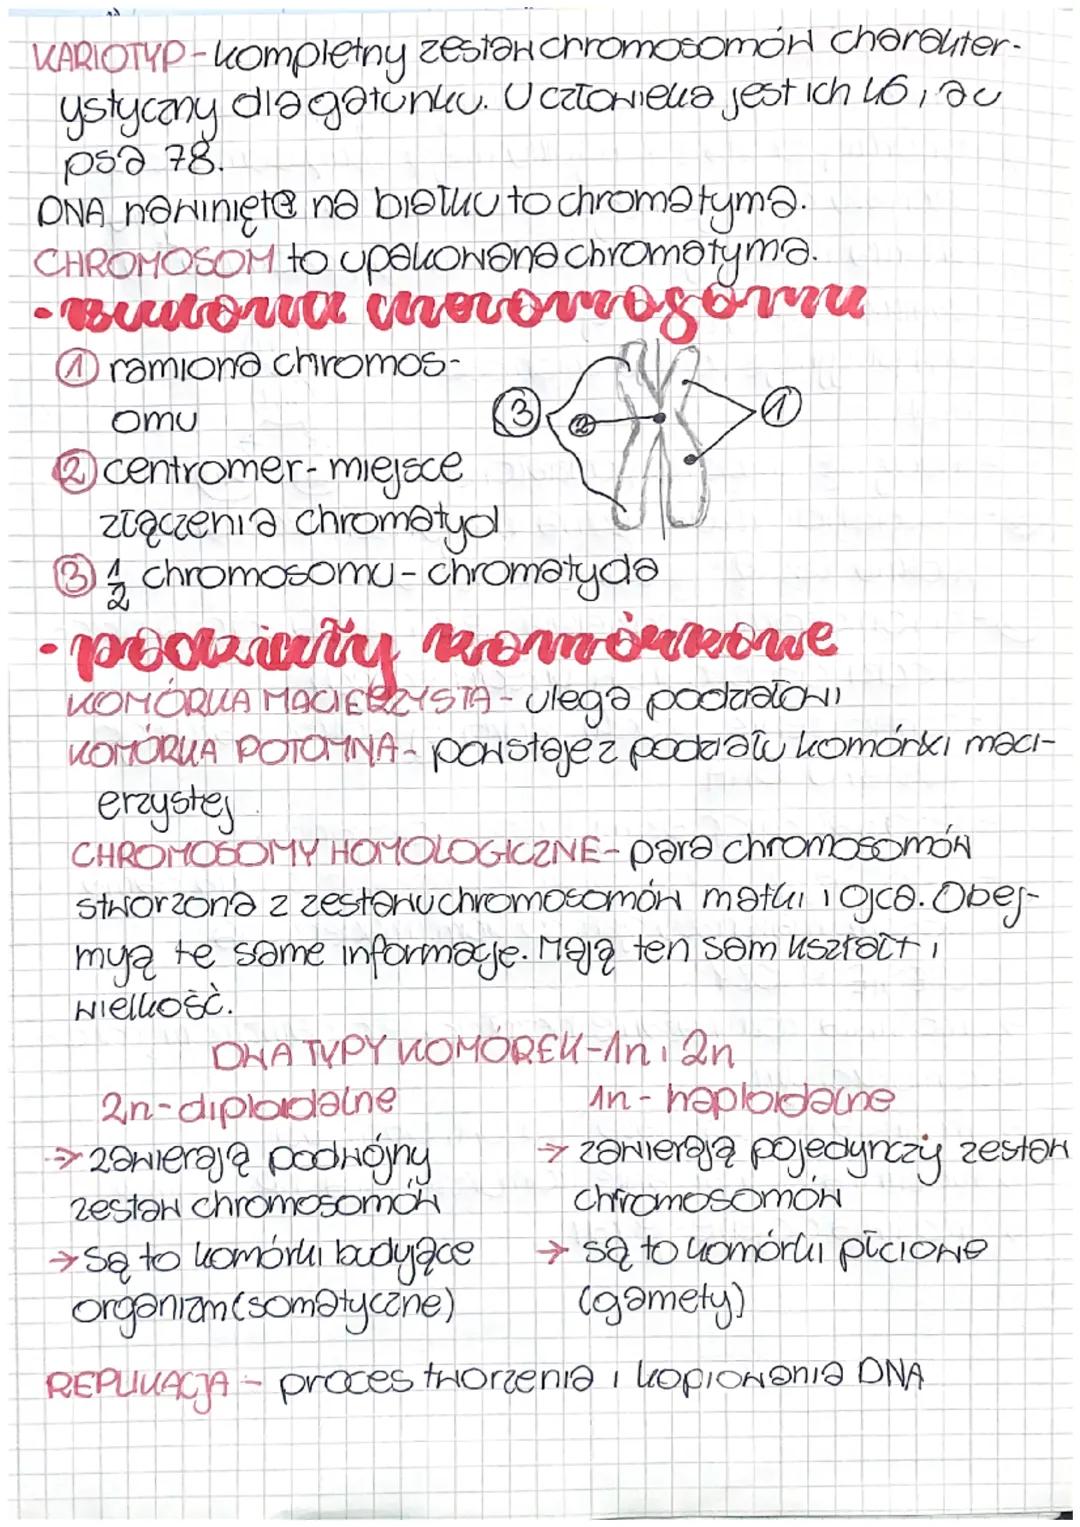 KARIOTYP - kompletny zestaw chromosomów charakter-
ystyczny dla gatunku. U człowieka jest ich 46, a u
psa 78.
DNA nawinięte na białku to chromatyma.
CHROMOSOM to upakowana chromatyma.
- Budowa chromosomu
① ramiona chromos-
omu
② centromer - miejsce
złączenia chromatyd
③ 1/2 chromosomu - chromatyda
③ ② ①
- podziały komórkowe
KOMÓRKA MACIERZYSTA - ulega podziałowi
KOMÓRKA POTOMNA - powstaje z podziału komórki maci-
erzystej
CHROMOSOMY HOMOLOGICZNE - para chromosomów
stworzona z zestawu chromosomów matki i ojca. Obej-
mują te same informacje. Mają ten sam kształt i
wielkość.
DWA TYPY KOMÓREK - 1n i 2n
2n - diploidalne
→ zawierają podwójny
zestaw chromosomów
→ są to komórki budujące
organizm (somatyczne)
1n - haploidalne
→ zawierają pojedynczy zestaw
chromosomów
→ są to komórki płciowe
(gamety)
REPLIKACJA - proces tworzenia i kopiowania DNA